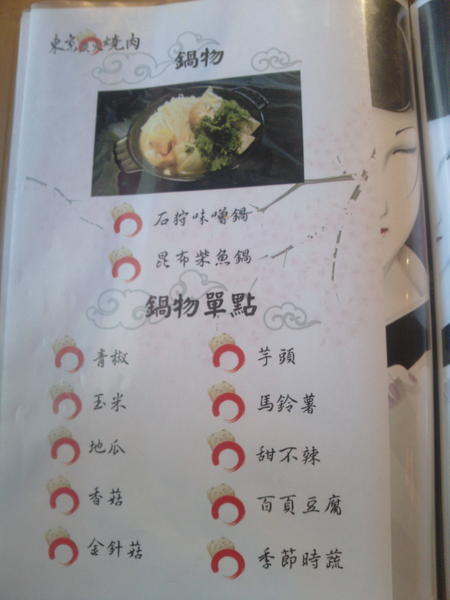 東京燒肉
鍋物
石狩味噌鍋
昆布柴魚鍋
鍋物單點
青椒
芋頭
玉米
馬鈴薯
地瓜
甜不辣
香菇
百頁豆腐
金針菇
季節時蔬